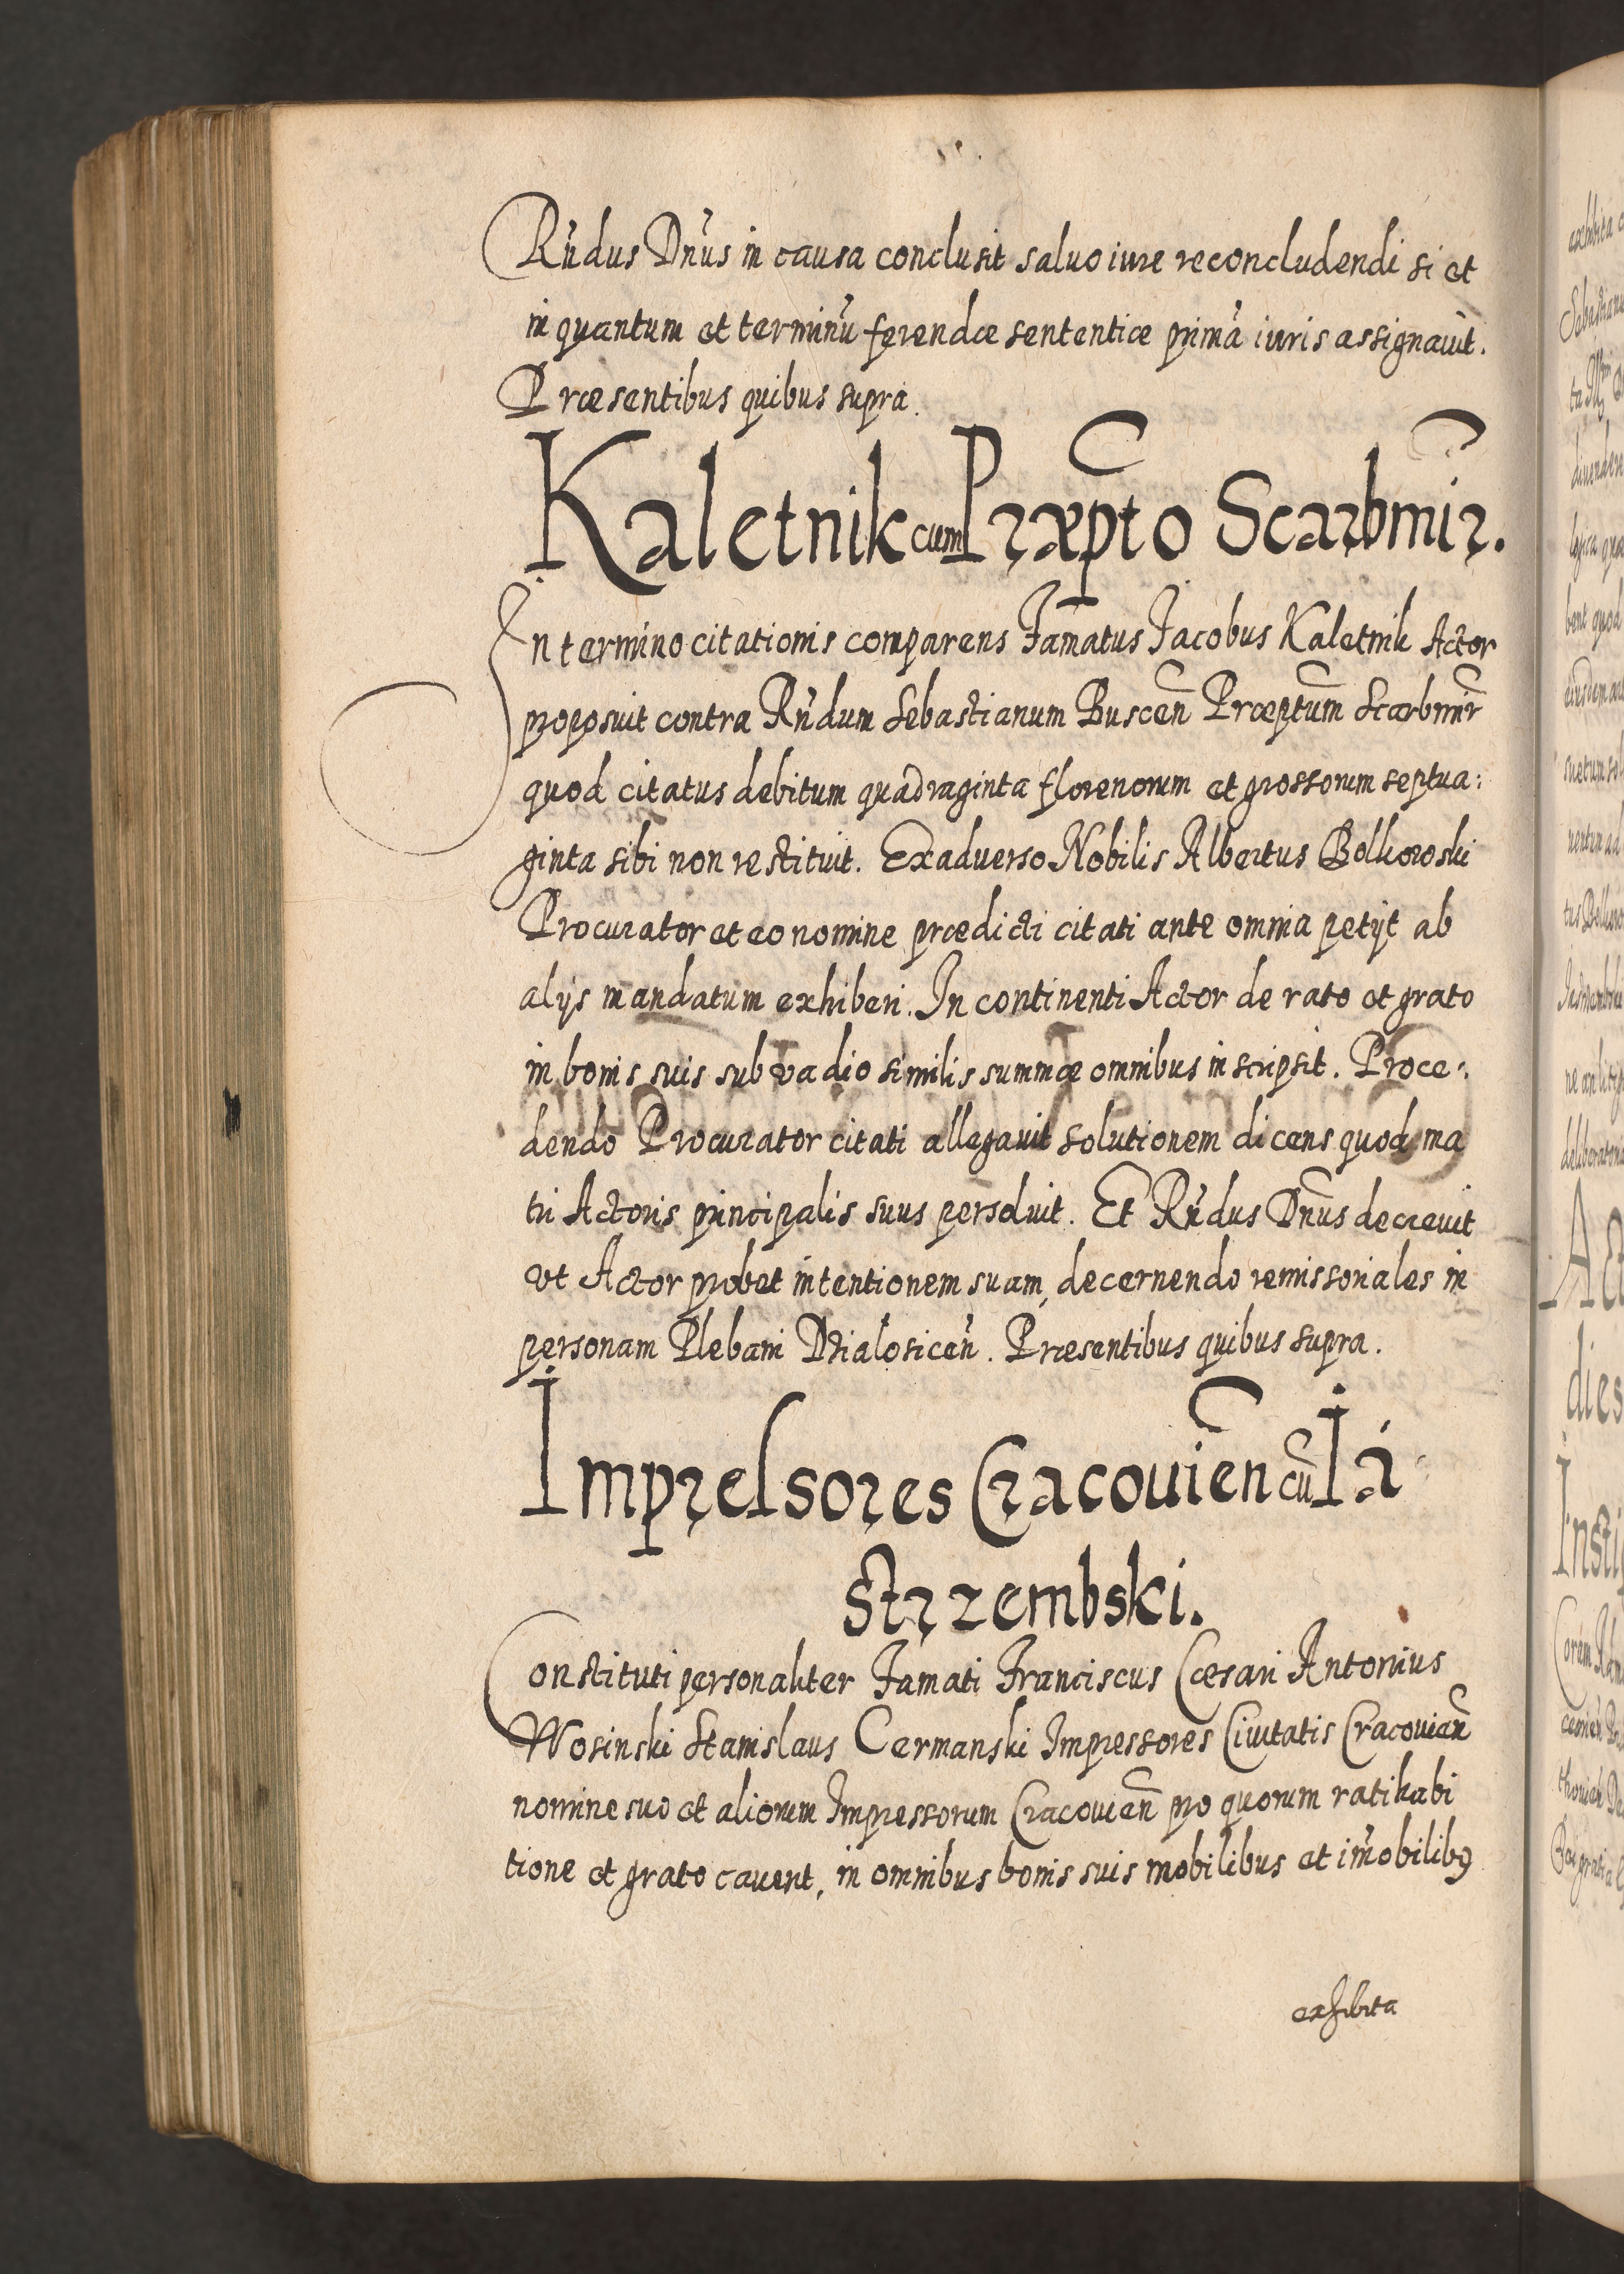 Rńdus Dńus in causa conclusit saluo iure reconcludendi si et
in quantum et terminũ ferendæ sententiæ primã iuris assignauit.
Præsentibus quibus supra.
Kaletnik cum Præpt̃o Scarbmir̃.
In termino citationis comparens Famatus Jacobus Kaletnik Actor
proposuit contra Rńdum Sebastianum Buscen̄ Præptum̃ Scarbmir̃
quod citatus debitum quadraginta florenorum et grossorum septua:
ginta sibi non restituit. Exaduerso Nobilis Albertus Bolkoroski
Procurator et eo nomine prædicti citati ante omnia petÿt ab
alÿs mandatum exhiberi. In continenti Actor de rato et grato
in bonis suis sub vadio similis summæ omnibus inscripsit. Proce:
dendo Procurator citati allegauit solutionem dicens quod ma
tri Actoris principalis suus persoluit. Et Rńdus Dñus decreuit
vt Actor probet intentionem suam, decernendo remissoriales in
personam Plebani Dzialosicen̄. Præsentibus quibus supra.
Impressores Cracouien̄ cũ Já
Strzembski.
Constituti personaliter Famati Franciscus Cæsari Antonius
Wosinski Stanislaus Cermanski Impressores Ciuitatis Cracouien̄
nomine suo et aliorum Impressorum Cracouien̄ pro quorum ratihabi
tione et grato cauent, in omnibus bonis suis mobilibus et im̃obilibꝯ
exhibita